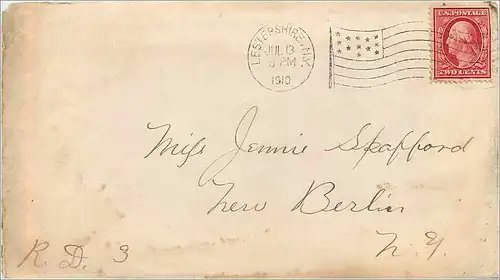 LESTERSHIRE, N.Y.
JUL 13
PM
1910
U.S. POSTAGE
TWO CENTS
Miss Jennie Spafford
New Berlin
R. D. 3 N. Y.